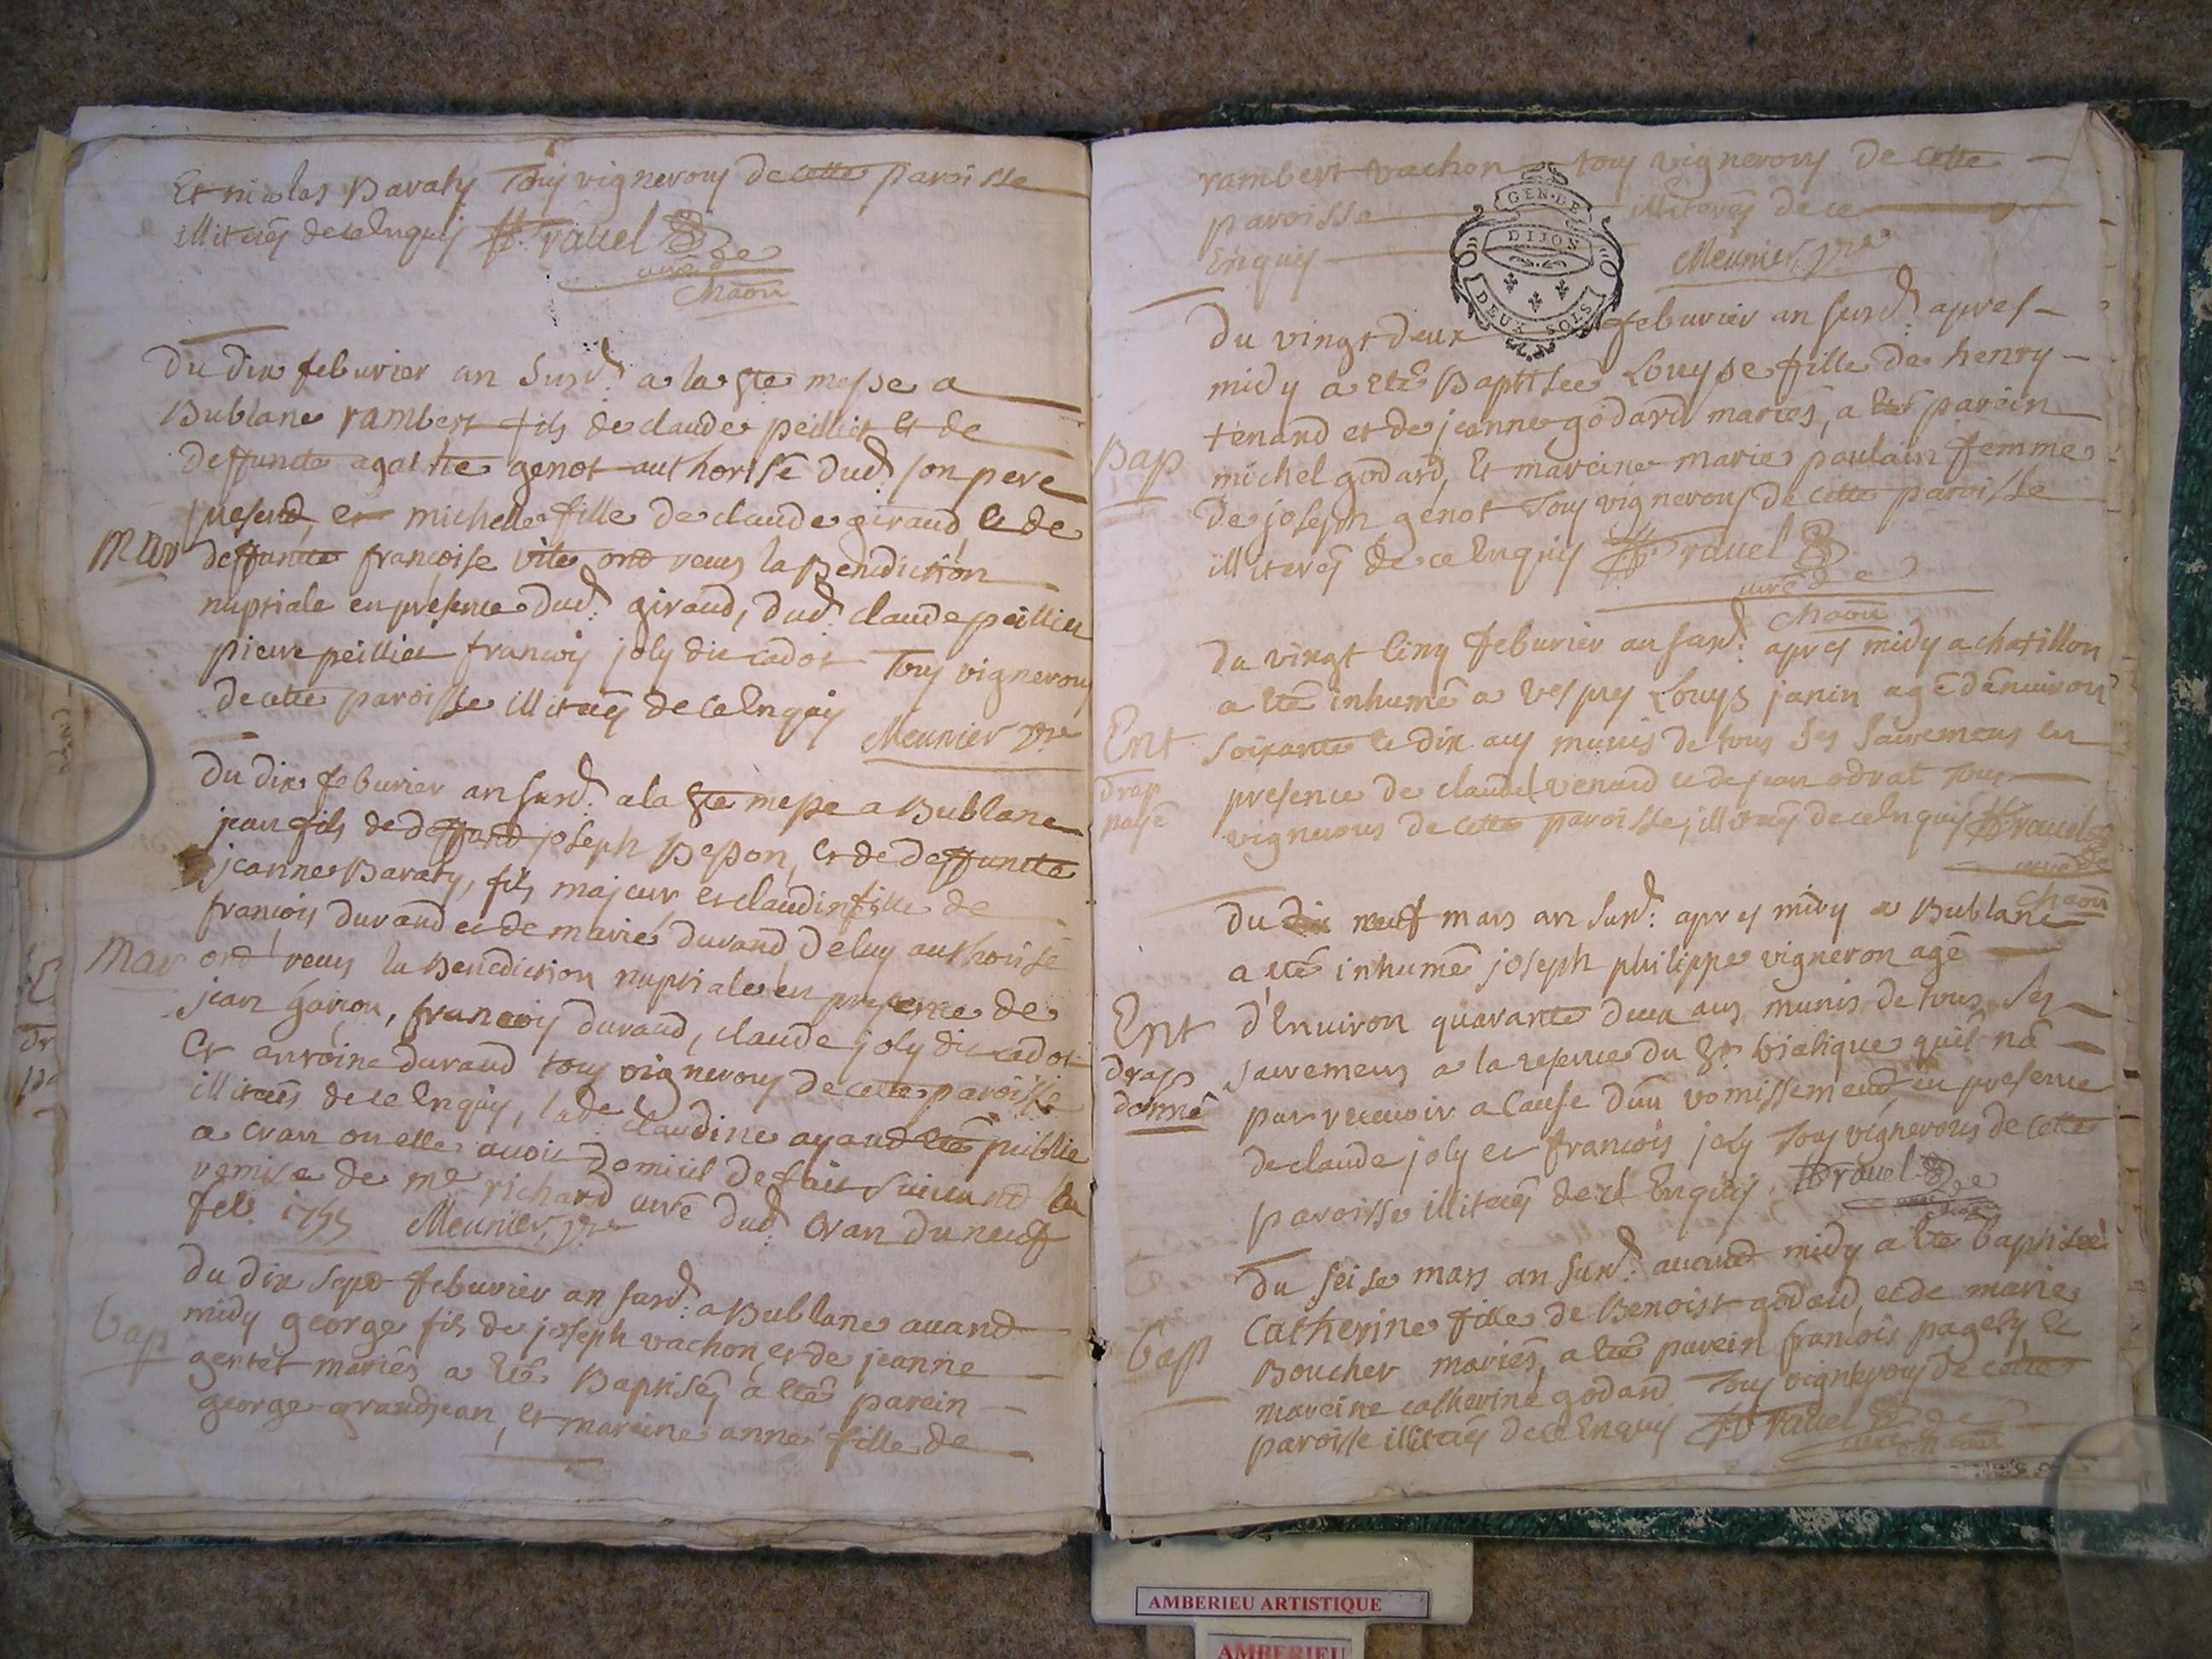 Et nicolas Baraty Tous vignerons de cette paroisse
illiterés de ce Enquis Ravel
curé de
Chaon
Du dix feburier an susd. a la Ste messe a
Bublane rambert fils de claude peilliet et de
deffuncte agathe genot authorisé dud. son pere
present, et michelle fille de claude giraud, et de
Mar
deffuncte françoise vite ont receus la Benediction
nuptiale en presence dud. giraud, dud. claude peilliet
pierre peilliet francois joly dit cadot Tous vignerons
de cette paroisse illiterés de ce Enquis
Meunier ptre
Du dix feburier an susd. a la Ste messe a Bublane
jean fils de deffunct joseph Besson, et de deffuncte
jeanne Baraty, fils majeur et claudine fille de
françois durand et de marie durand de luy authorisé
Mar
ont receus la Benediction nuptiale en presence de
jean garion, francois durand, claude joly dit cadot
Et antoine durand tous vignerons de cette paroisse
illiterés de ce Enquis, lad. claudine ayand été publié
a cran ou elle avoit domicil de fait suivand la
remise de me richard curé dud. cran du neuf
feb. 1755 Meunier, ptre
Du dix sept feburier an susd. a Bublane avand
midy george fils de joseph vachon, et de jeanne
Bap
gertet mariés a été Baptisé, a été parein
george grandjean, et mareine anne fille de
rambert vachon tous vignerons de cette
paroisse illiterés de ce
Enquis
Meunier, ptre
GEN. DE
DIJON
DEUX SOLS
Du vingt deux feburier an susd. apres
midy a été Baptisée Louyse fille de henry
tenand et de jeanne godard mariés, a été parein
Bap
michel godard, Et mareine marie poulain femme
De joseph genot Tous vignerons de cette paroisse
illiterés de ce Enquis Ravel
curé de
Chaon
Du vingt cinq feburier an susd. apres midy a chatillon
a été inhumé a vespres Louys janin agé d'environ
Ent
soixante et dix ans munis de tous ses sacremens en
drap
payé
presence de claude venard et de jean odrat Tous
vignerons de cette paroisse, illiterés de ce Enquis Ravel
curé de
Chaon
Du neuf mars an susd. apres midy a Bublane
a été inhumé joseph philippe vigneron agé
Ent
d'Environ quarante deux ans munis de tous ses
drap
donné
sacremens a la reserve du St. viatique quil na
pas receuoir a cause dun vomissement, en presence
de claude joly et francois joly Tous vignerons de cette
paroisse illiterés de ce Enquis. Ravel
Du seise mars an susd. avand midy a été baptisée
Catherine fille de Benoist godard, et de marie
Bap
Boucher mariés, a été parein francois pagety et
mareine catherine godard Tous vignerons de cette
paroisse illiterés de ce Enquis Ravel
AMBERIEU ARTISTIQUE
AMBERIEU